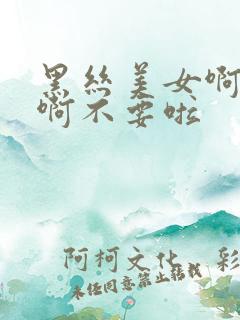 黑丝美女啊
啊不要啦
阿柯文化 彩
未经同意禁止转载